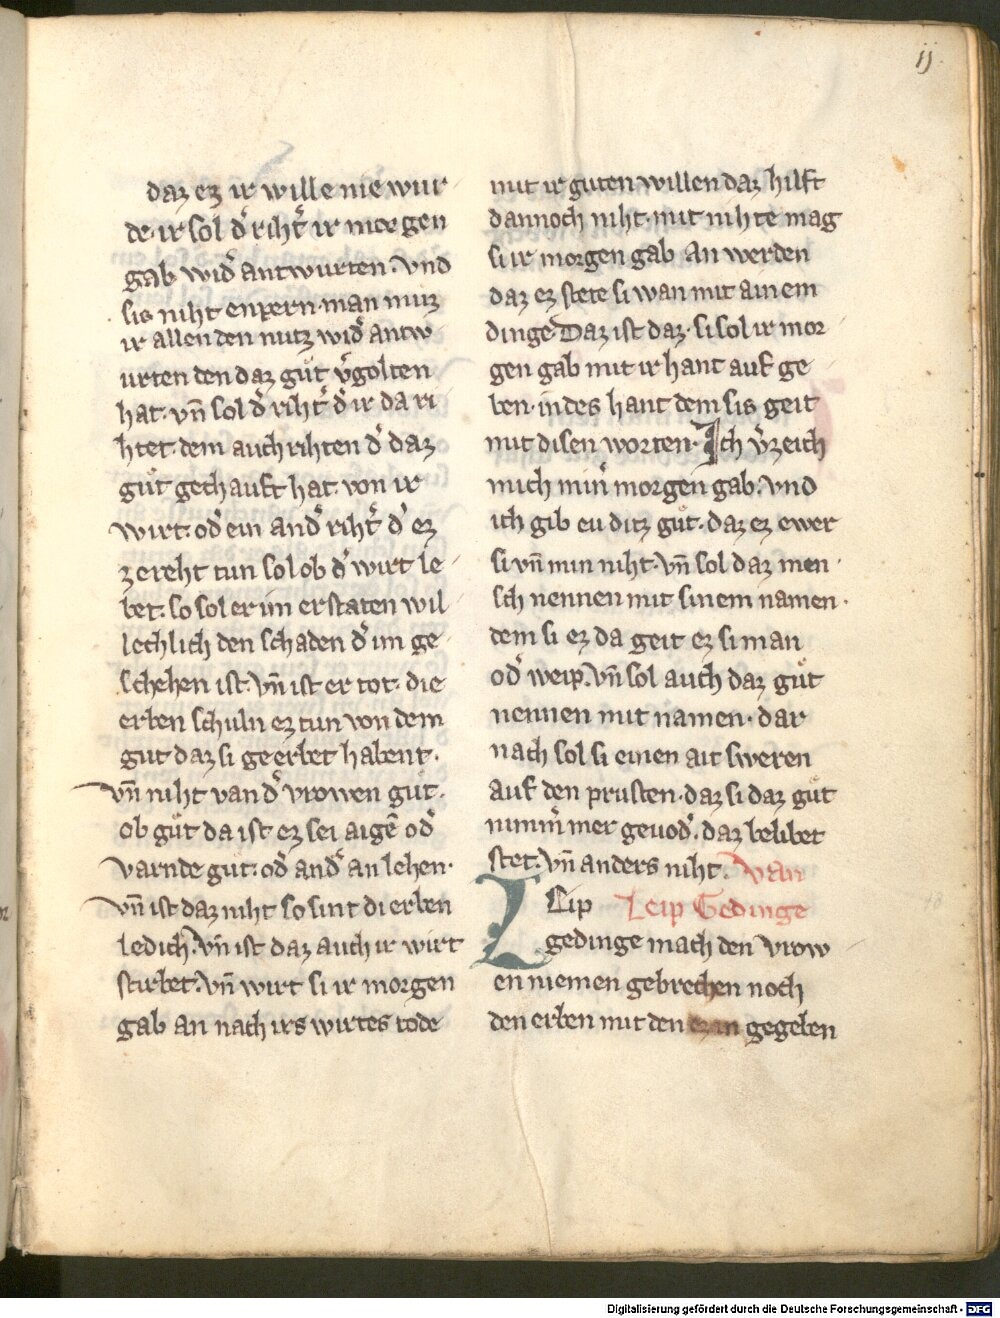 ij.
daz ez ir wille nie wur
de. ir sol d͛ riht͛ ir morgen
gab wid͛ antwurten. vnd
sis niht enpern. man muz
ir allen den nutz wid͛ antw
urten den daz guͦt v͛golten
hat. vn̄ sol d͛ riht͛ d͛ ir da ri
htet. dem auch rihten d͛ daz
guͦt gechauft hat. von ir
wirt. od͛ ein and͛ riht͛ d͛ ez
ze reht tun sol ob d͛ wirt le
bet. so sol er im erstaten wil
lechlich den schaden d͛ im ge
schehen ist. vn̄ ist er tot. die
erben schuln ez tun von dem
gut daz si geerbet habent.
vn̄ niht van d͛ vrowen guͦt.
ob guͦt da ist ez sei aigē od͛
varnde gut. od͛ and͛ an lehen.
vn̄ ist daz niht so sint di erben
ledich. vn̄ ist daz auch ir wirt
stirbet. vn̄ wirt si ir morgen
gab an nach irs wirtes tode
mit ir guten willen daz hilft
dannoch niht. mit nihte mag
si ir morgen gab an werden
daz ez stete si wan mit ainem
dinge Daz ist daz. si sol ir mor
gen gab mit ir hant auf ge
ben. in des hant dem sis geit
mit disen worten. Ich v͛zeich
mich min͛ morgen gab. vnd
ich gib eu ditz guͦt. daz ez ewer
si vn̄ min niht. vn̄ sol daz men
sch nennen mit sinem namen.
dem si ez da geit ez si man
od͛ weip. vn̄ sol auch daz guͦt
nennen mit namen. dar
nach sol si einen ait sweren
auf den prusten. daz si daz guͦt
nimm͛ mer gevod͛. daz belibet
stet. vn̄ anders niht. van
Lip Leip Gedinge
gedinge mach den vrow
en niemen gebrechen noch
den erben mit den ez in gegeben
Digitalisierung gefördert durch die Deutsche Forschungsgemeinschaft - DFG